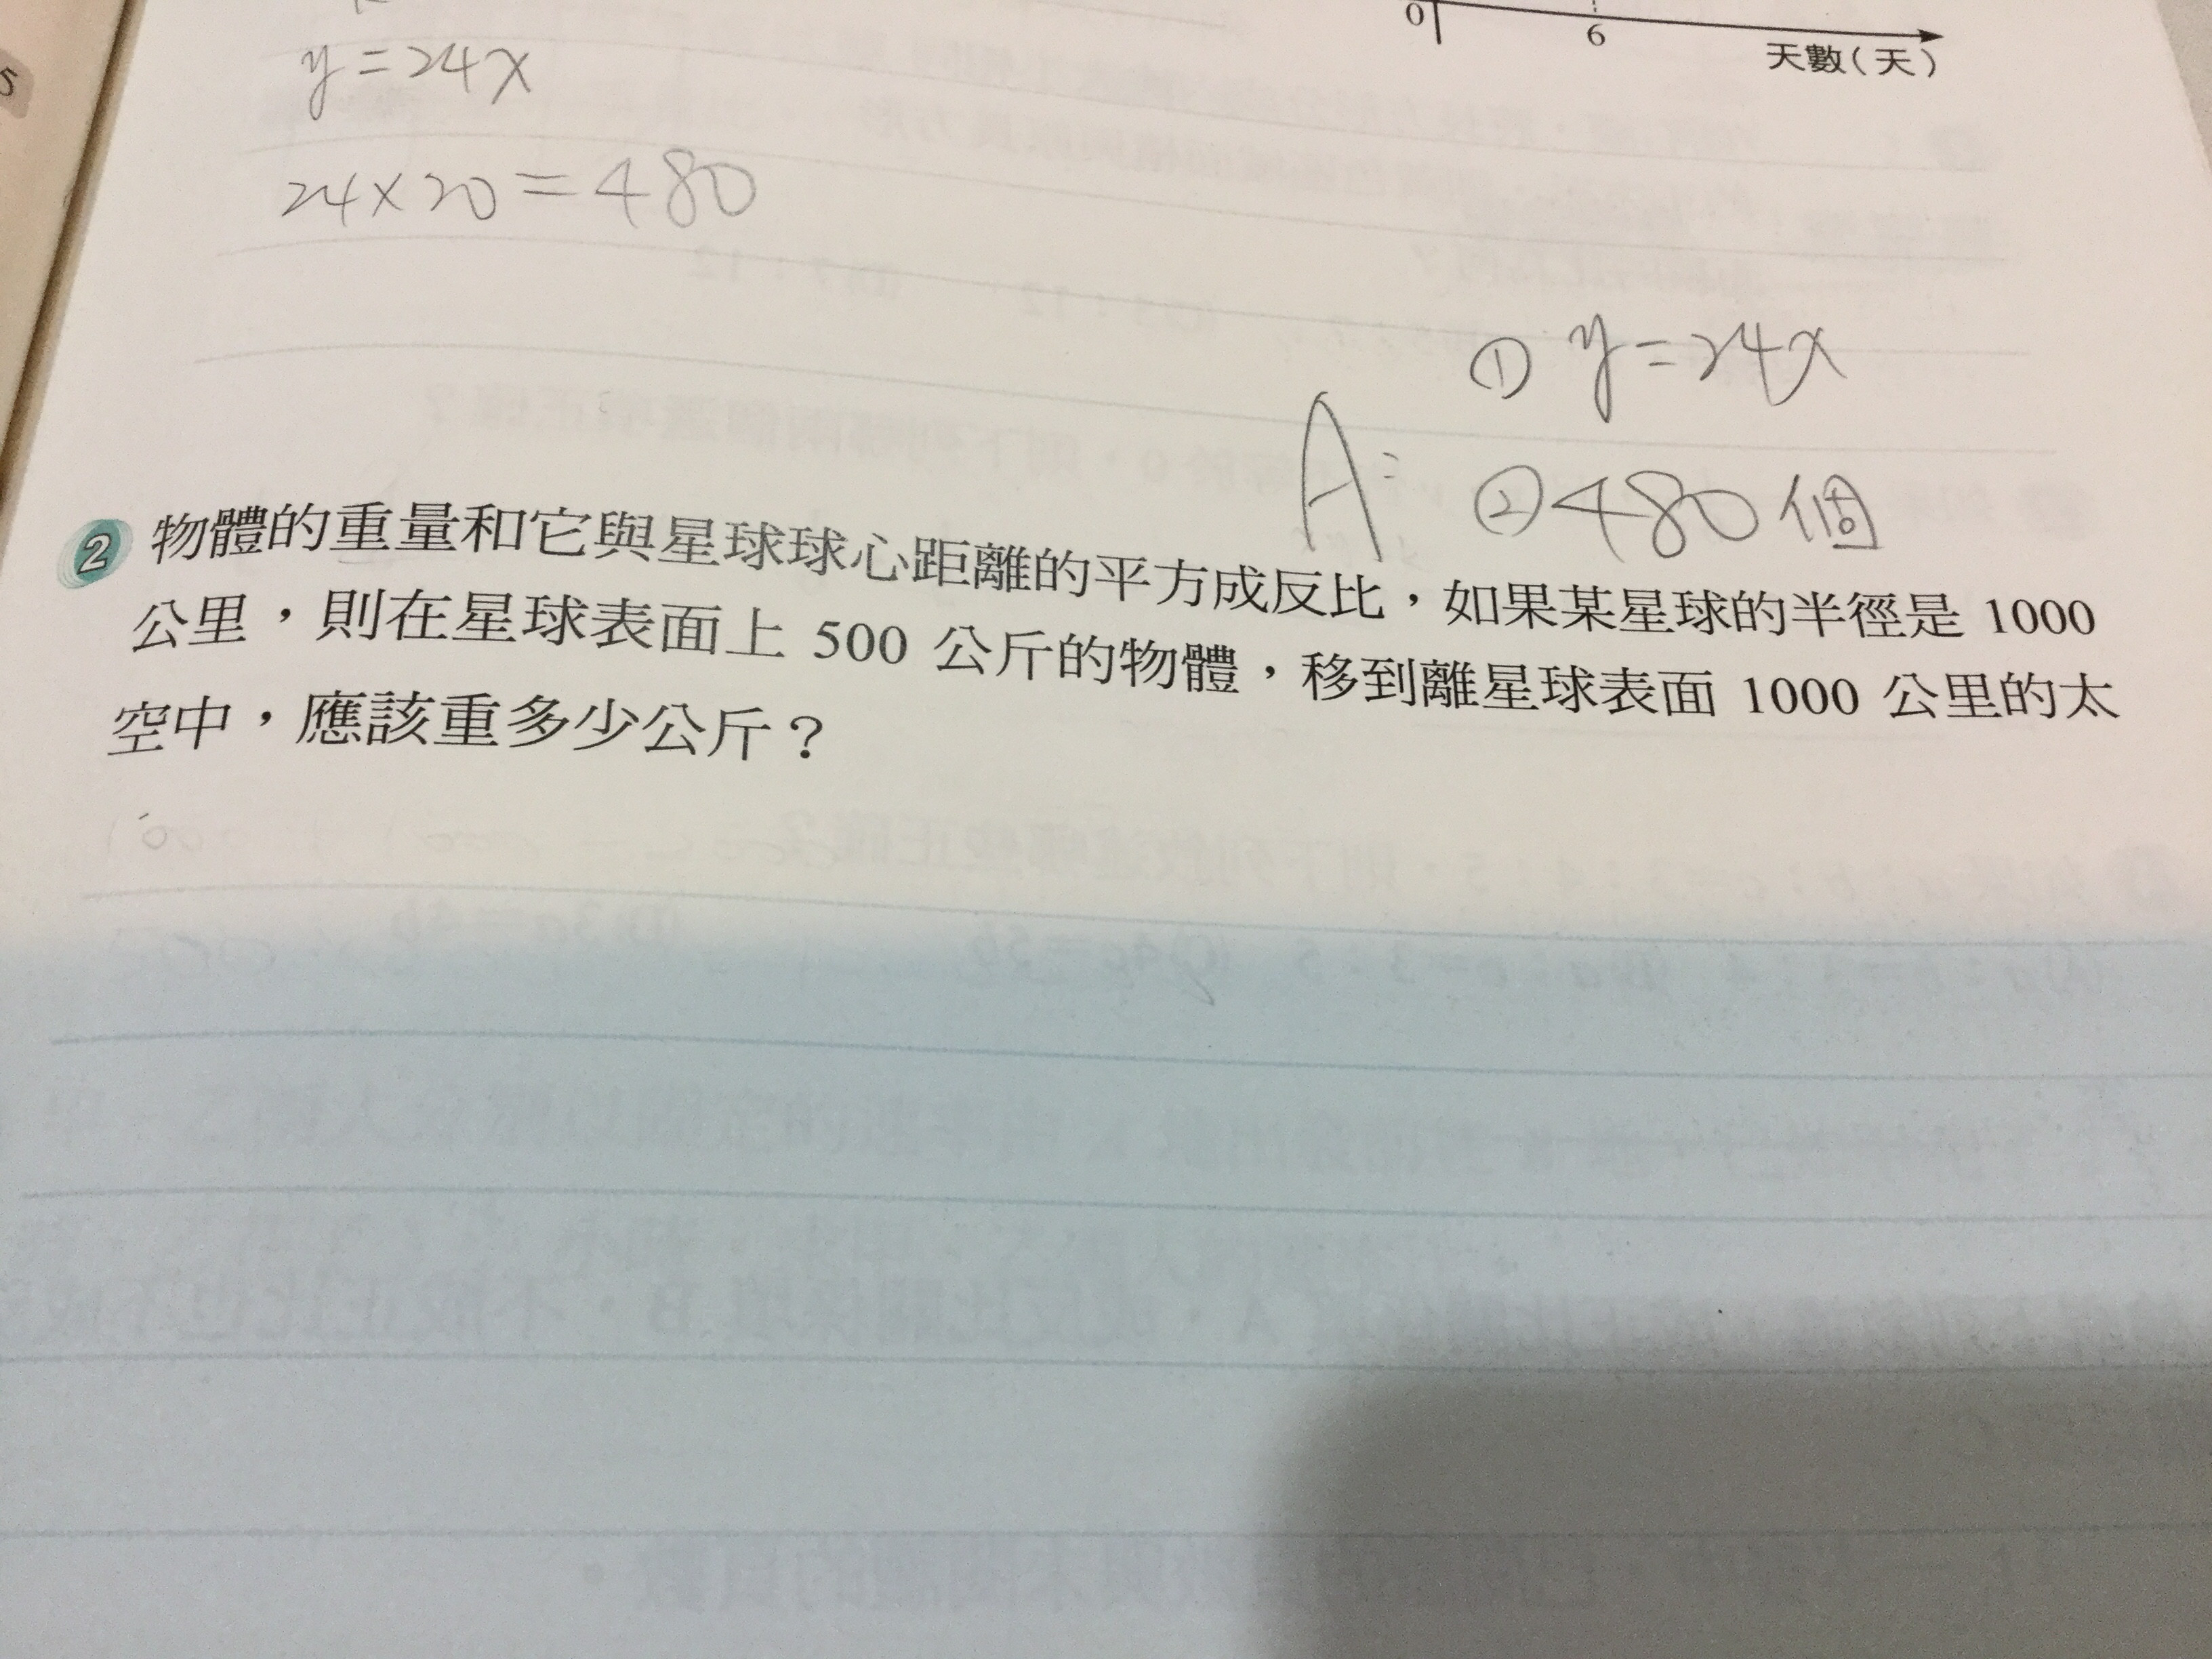 0
6
天數（天）
y=24x
24×20=480
A:
① y=24x
② 480個
2 物體的重量和它與星球球心距離的平方成反比，如果某星球的半徑是 1000
公里，則在星球表面上 500 公斤的物體，移到離星球表面 1000 公里的太
空中，應該重多少公斤？